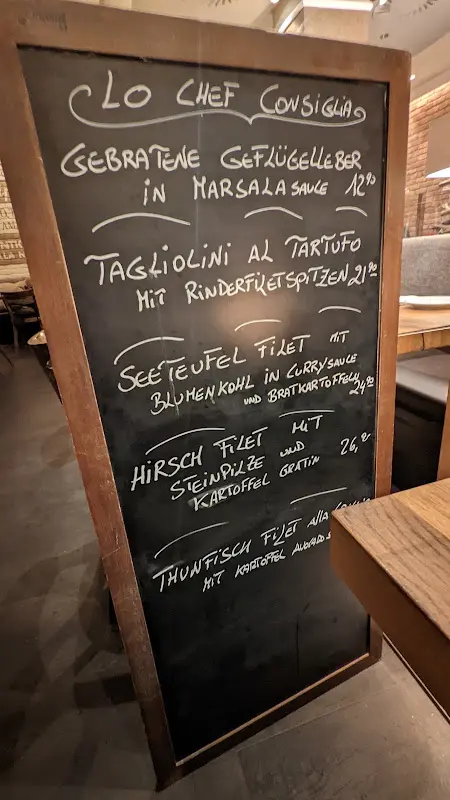 LO CHEF CONSIGLIA
GEBRATENE GEFLÜGELLEBER
IN MARSALASAUCE 12,90
TAGLIOLINI AL TARTUFO
MIT RINDERFILETSPITZEN 21,90
SEETEUFEL FILET MIT
BLUMENKOHL IN CURRYSAUCE
UND BRATKARTOFFELN
24,90
HIRSCH FILET MIT
STEINPILZE UND
KARTOFFEL GRATIN 26,90
THUNFISCH FILET ALLA
MIT KARTOFFEL